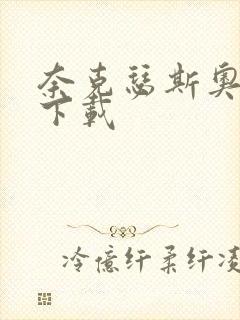 奈克瑟斯奥
下载
冷億纤柔纤凌